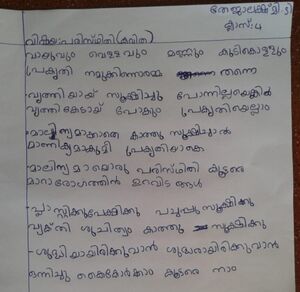 തേജാലക്ഷ്മി.ടി
ക്ലാസ്:4
വിഷയം:പരിസ്ഥിതി (കവിത)
വായുവും വെള്ളവും മണ്ണും കുടികൊള്ളും
പ്രകൃതി നമുക്കിന്നാരമ്മ തന്നെ
വൃത്തിയായ് സൂക്ഷിച്ചു പോന്നില്ലയെങ്കിൽ
വൃത്തികേടായ് പോകും പ്രകൃതിയെല്ലാം
മാലിന്യമാക്കാതെ കാത്തു സൂക്ഷിച്ചാൽ
മാണിക്യമാകുമീ പ്രകൃതിയാകെ
മാലിന്യമാലൊരു പരിസ്ഥിതി കൂട്ടരേ
മാറാരോഗത്തിൻ ഉറവിടം
പ്ലാസ്റ്റിക്കുപേക്ഷിക്കൂ പച്ചപ്പു സൂക്ഷിക്കൂ
വ്യക്തി ശുചിത്വം കാത്തു സൂക്ഷിക്കൂ
ശുദ്ധിയായിരിക്കുവാൻ ശുദ്ധരായിരിക്കുവാൻ
ഒന്നിച്ചു കൈകോർക്കാം കൂട്ടരേ നാം